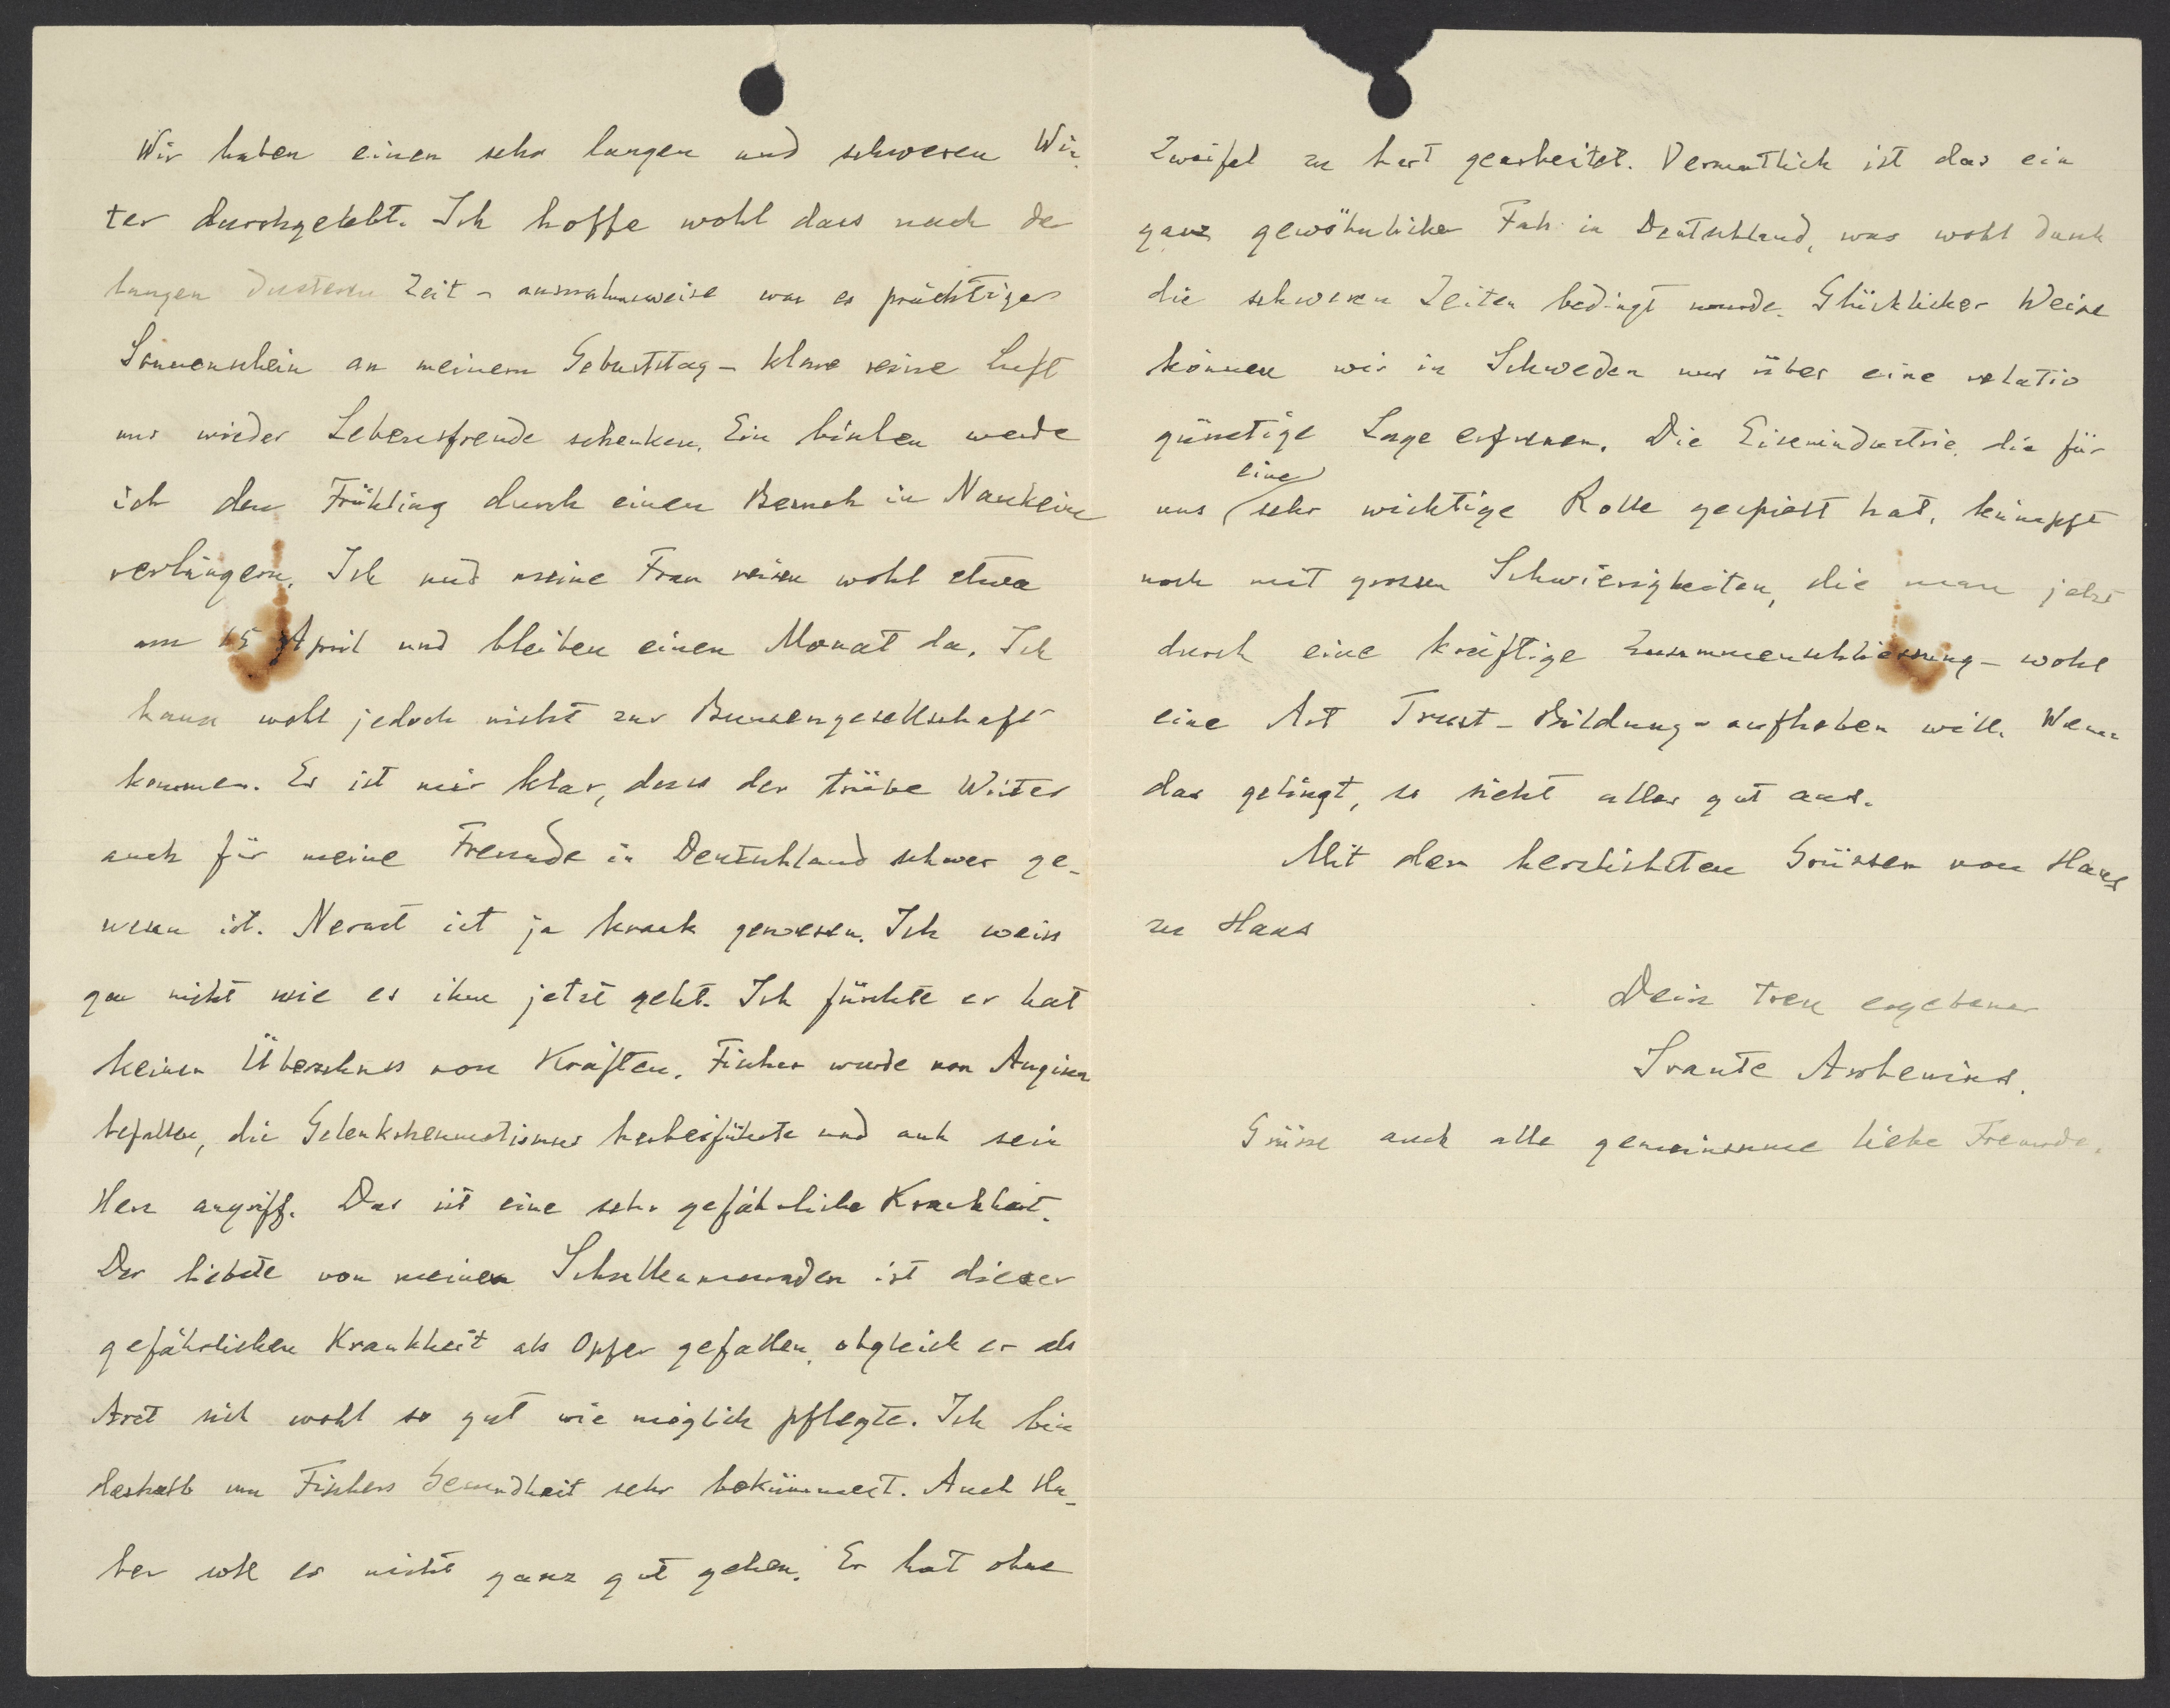 Wir haben einen sehr langen und schweren Win-
ter durchgelebt. Ich hoffe wohl dass nach der
langen düsteren Zeit - ausnahmsweise war es prächtiger
Sonnenschein an meinem Geburtstag - klare reine Luft
uns wieder Lebensfreude schenken. Ein bischen werde
ich den Frühling durch einen Besuch in Nauheim
verlängern. Ich und meine Frau reisen wohl etwa
am 15 April und bleiben einen Monat da. Ich
kann wohl jedoch nicht zur Bunsengesellschaft
kommen. Es ist mir klar, dass der trübe Winter
auch für meine Freunde in Deutschland schwer ge-
wesen ist. Nernst ist ja krank gewesen. Ich weiss
gar nicht wie es ihm jetzt geht. Ich fürchte er hat
keinen Überschuss von Kräften. Fischer wurde von Angina
befallen, die Gelenkrheumatismus herbeiführte und auch sein
Herz angriff. Das ist eine sehr gefährliche Krankheit.
Der liebste von meinen Schulkameraden ist dieser
gefährlichen Krankheit als Opfer gefallen, obgleich er als
Arzt sich wohl so gut wie möglich pflegte. Ich bin
deshalb um Fischers Gesundheit sehr bekümmert. Auch Ha-
ber soll es nicht ganz gut gehen. Er hat ohne
Zweifel zu hart gearbeitet. Vermutlich ist das ein
ganz gewöhnlicher Fall in Deutschland, was wohl durch
die schweren Zeiten bedingt wurde. Glücklicher Weise
können wir in Schweden uns über eine relativ
günstige Lage erfreuen. Die Eisenindustrie, die für
uns eine sehr wichtige Rolle gespielt hat, kämpft
noch mit grossen Schwierigkeiten, die man jetzt
durch eine kräftige Zusammenschliessung - wohl
eine Art Trust-Bildung - aufheben will. Wenn
das gelingt, so sieht alles gut aus.
Mit den herzlichsten Grüssen von Haus
zu Haus
Dein treu ergebener
Svante Arrhenius.
Grüsse auch alle gemeinsame liebe Freunde.